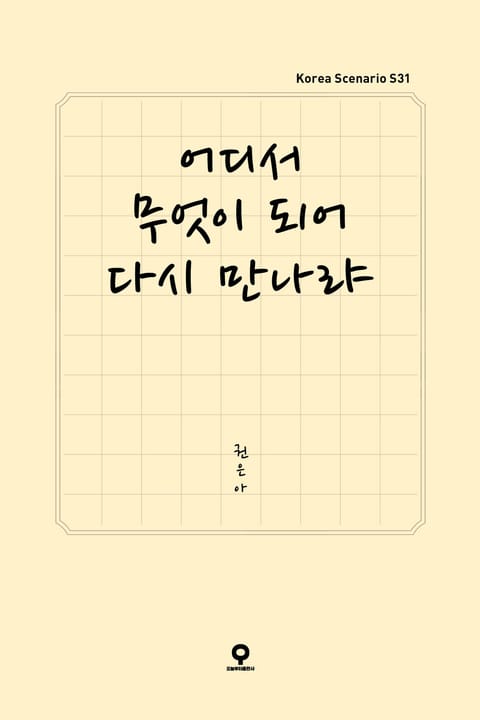 Korea Scenario S31
어디서
무엇이 되어
다시 만나랴
권은아
오늘부터출판사